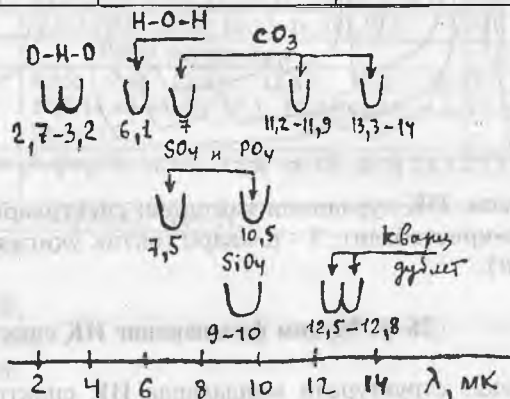 H-O-H
O-H-O
CO₃
2,7-3,2
6,1
7
11,2-11,9
13,3-14
SO₄ и PO₄
7,5
10,5
SiO₄
кварц
дублет
9-10
12,5-12,8
2 4 6 8 10 12 14 λ, мк